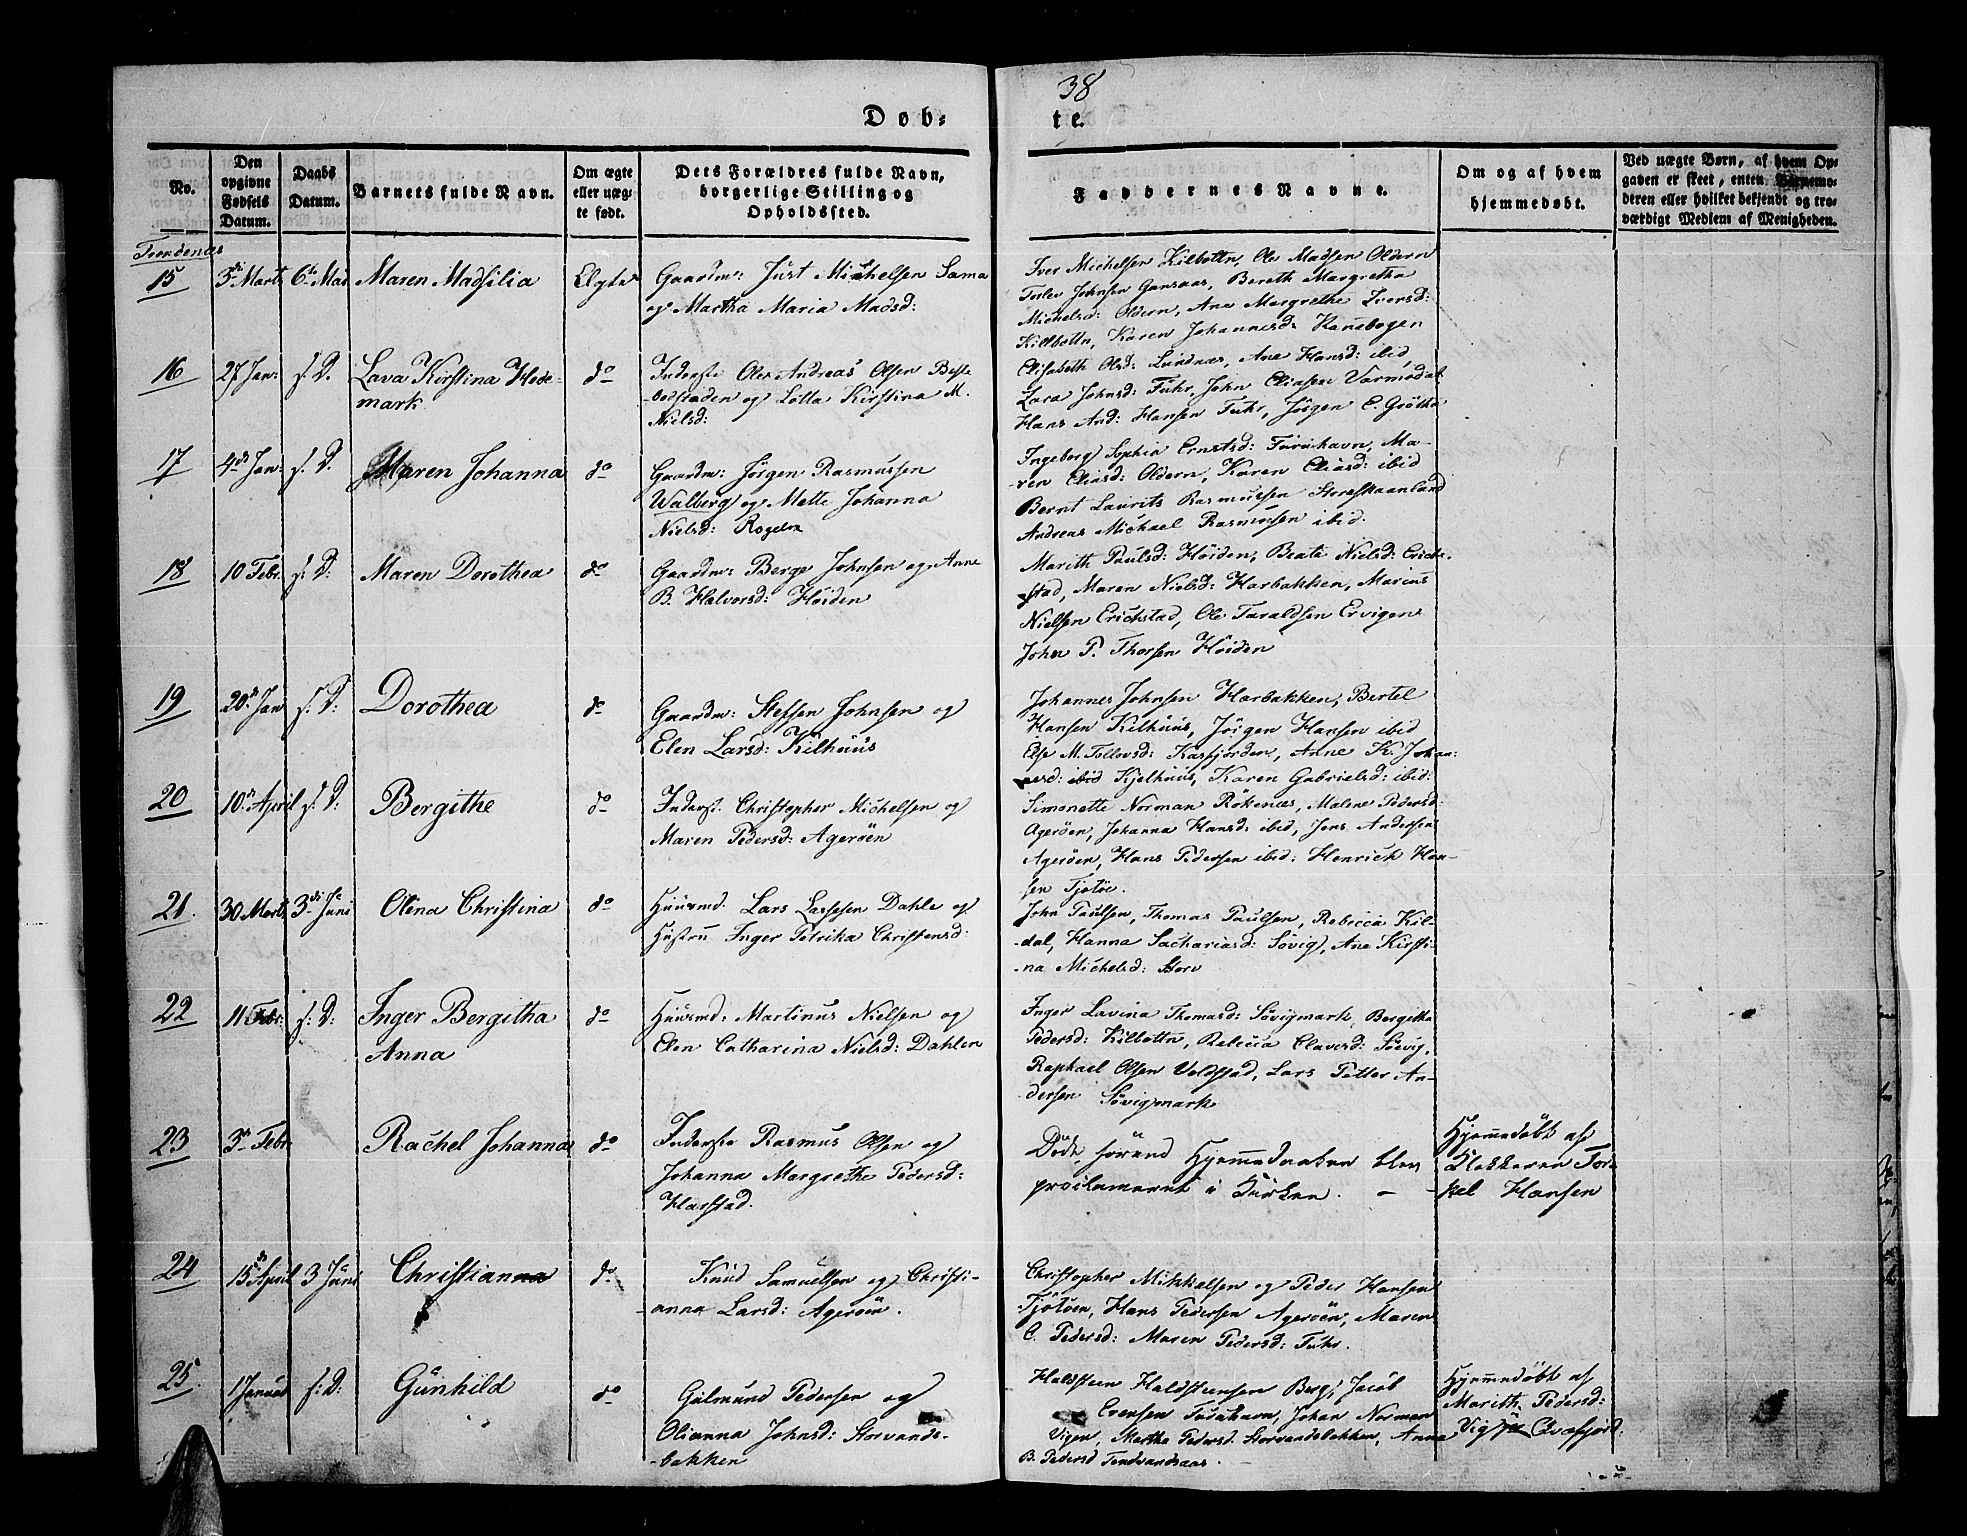 38
Døb=
te.
No.
Den opgivne Fødsels Datum.
Daabs Datum.
Barnets fulde Navn.
Om ægte eller uægte født.
Dets Forældres fulde Navn, borgerlige Stilling og Opholdssted.
Faddernes Navne.
Om og af hvem hjemmedøbt.
Ved uægte Børn, af hvem Opgaven er skeet, enten Barnemoderen eller hvilket bekjendt og troværdigt Medlem af Menigheden.
Trondenæs
15
3di Marts
6te Mai
Maren Madsilia
Ægte
Gaardm: Just Michelsen Sama
og Martha Maria Madsd:
Iver Michelsen Kilbottn, Ole Madsen Oldern
Torlev Johnsen Gansaas, Bereth Margretha
Michelsd: Oldern, Ane Margrethe Iversd:
Killbottn, Karen Johannesd: Kanebogen
16
27 Jan:
s. D.
Lava Kirstina Hede-
mark
do
Inderste Ole Andreas Olsen Besse
-bodstaden og Lolla Kirstina M.
Nielsd:
Elisabeth Olsd: Lundnæs, Ane Hansd: ibid,
Lara Johnsd: Fuhr, John Eliasen Varmedal
Hans And: Hansen Fuhr, Jørgen C. Grøtha
17
4de Jan:
s. D.
Maren Johanna
do
Gaardm: Jørgen Rasmussen
Walberg og Mette Johanna
Nielsd: Rogelin
Ingeborg Sophia Ernstsd: Furuhavn, Ma-
-ren Eliasd: Oldern, Karen Eliasd: ibid
Bernt Laurits Rasmussen Storeskaanland
Andreas Michael Rasmusen ibid.
18
10 Febr.
s: D:
Maren Dorothea
do
Gaardm: Berge Johnsen og Anne
B. Halvorsd: Høiden
Marith Paulsd: Høiden, Beate Nielsd: Erich-
stad, Maren Nielsd: Harbakken, Marius
Nielsen Erichstad, Ole Taraldsen Ervigen
John P. Thorsen Høiden
19
20de Jan
s: D:
Dorothea
do
Gaardm: Steffen Johnsen og
Elen Larsd: Kilhuus
Johannes Johnsen Harbakken, Bertel
Hansen Kilhuus, Jørgen Hansen ibid
Else M. Tollevsd: Kasfjorden, Anne K. Johan-
nesd: ibid Kjelhuus, Karen Gabrielsd: ibid:
20
10de April
s: D:
Bergithe
do
Inderst: Christopher Michelsen og
Maren Pedersd: Agerøen
Simonette Norman Røkenes, Malene Pedersd:
Agerøen, Johanna Hansd: ibid, Jens Andersen
Agerøen, Hans Pedersen ibid: Henrich Han-
sen Tjotøe.
21.
30 Marts
3di Juni
Olina Christina
do
Huusmd. Lars Larsesen Dahle og
Hustru Inger Petrika Christensd:
John Paulsen, Thomas Paulsen, Rebecca Kil-
-dal, Hanna Sachariasd: Søvig, Ane Kirsti-
-na Michelsd: Storv
22
11 Febr:
s: D:
Inger Bergitha
Anna
do
Huusmd: Martinus Nielsen og
Elen Catharina Nielsd: Dahlen
Inger Lavina Thomasd: Søvigmark, Bergitha
Pedersd: Kilbottn, Rebecca Clavesd: Søevig,
Raphael Olsen Voldstad, Lars Petter An-
-dersen Søvigmark
23
3die Febr
Rachel Johanna
do
Inderste Rasmus Olsen og
Johanna Margrethe Pedersd:
Harstad.
Død, førend Hjemmedaaben blev
proclameret i Kirken. –
Hjemmedøbt af
Klokkeren Tor-
kel Hansen
24
15de April
3 Juni
Christian
do
Knud Samuelsen og Christi-
-anna Larsd: Agerøen.
Christopher Mikkelsen og Peder Hansen
Tjotøen, Hans Pedersen Agerøen, Maren
C. Pedersd: Maren Pedersd: Fuhr.
25
1 Januar
s: D:
Gunhild
do
Gulmund Pedersen og
Olianna Johnsd: Storvands-
-bakken
Haldsteen Haldsteensen Berg, Jacob
Evensen Furuhavn, Johan Norman
Vigen, Martha Pedersd. Storvandsbakken, Anna
B. Pedersd Tendvandsaas.
Hjemmedøbt af
Marith Pedersd:
Vig Qvæfjord: